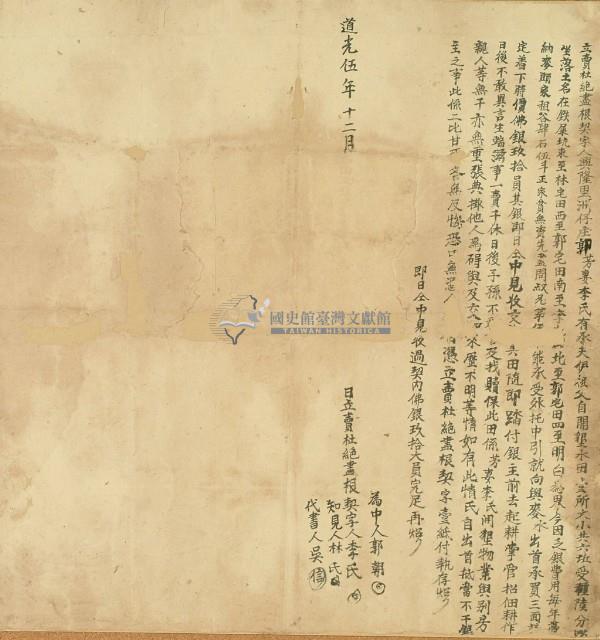 立賣杜絕盡根契字人興隆里
芳妻李氏有承夫伊祖父自開墾水田壹所大小共六坵受
坐落土名在
東至林宅田西至郭宅田南至
北至郭宅田四至明白為界今因乏銀費用每年帶
納
租谷肆石伍斗正
貧無資先盡問叔兄弟
能承受外托中引就向與麥
出首承買三面
定着下時價佛銀玖拾員其銀即日仝中見收
其田隨即踏付銀主前去起耕掌管招佃耕作
日後不敢異言生端滋事一賣千休日後子孫不
及找贖保此田係芳妻李氏開墾物業與別房
親人等無干亦無重張典掛他人為碍與及交
來歷不明等情如有此情氏自出首抵當不干銀
主之事此係二比甘
各無反悔恐口無憑
立賣杜絕盡根契字壹紙付執存炤
即日仝中見收過契內佛銀玖拾大員完足再炤
為中人郭朝
道光伍年十二月
日立賣杜絕盡根契字人李氏
知見人林氏
代書人吳
國史館臺灣文獻館
TAIWAN HISTORICA